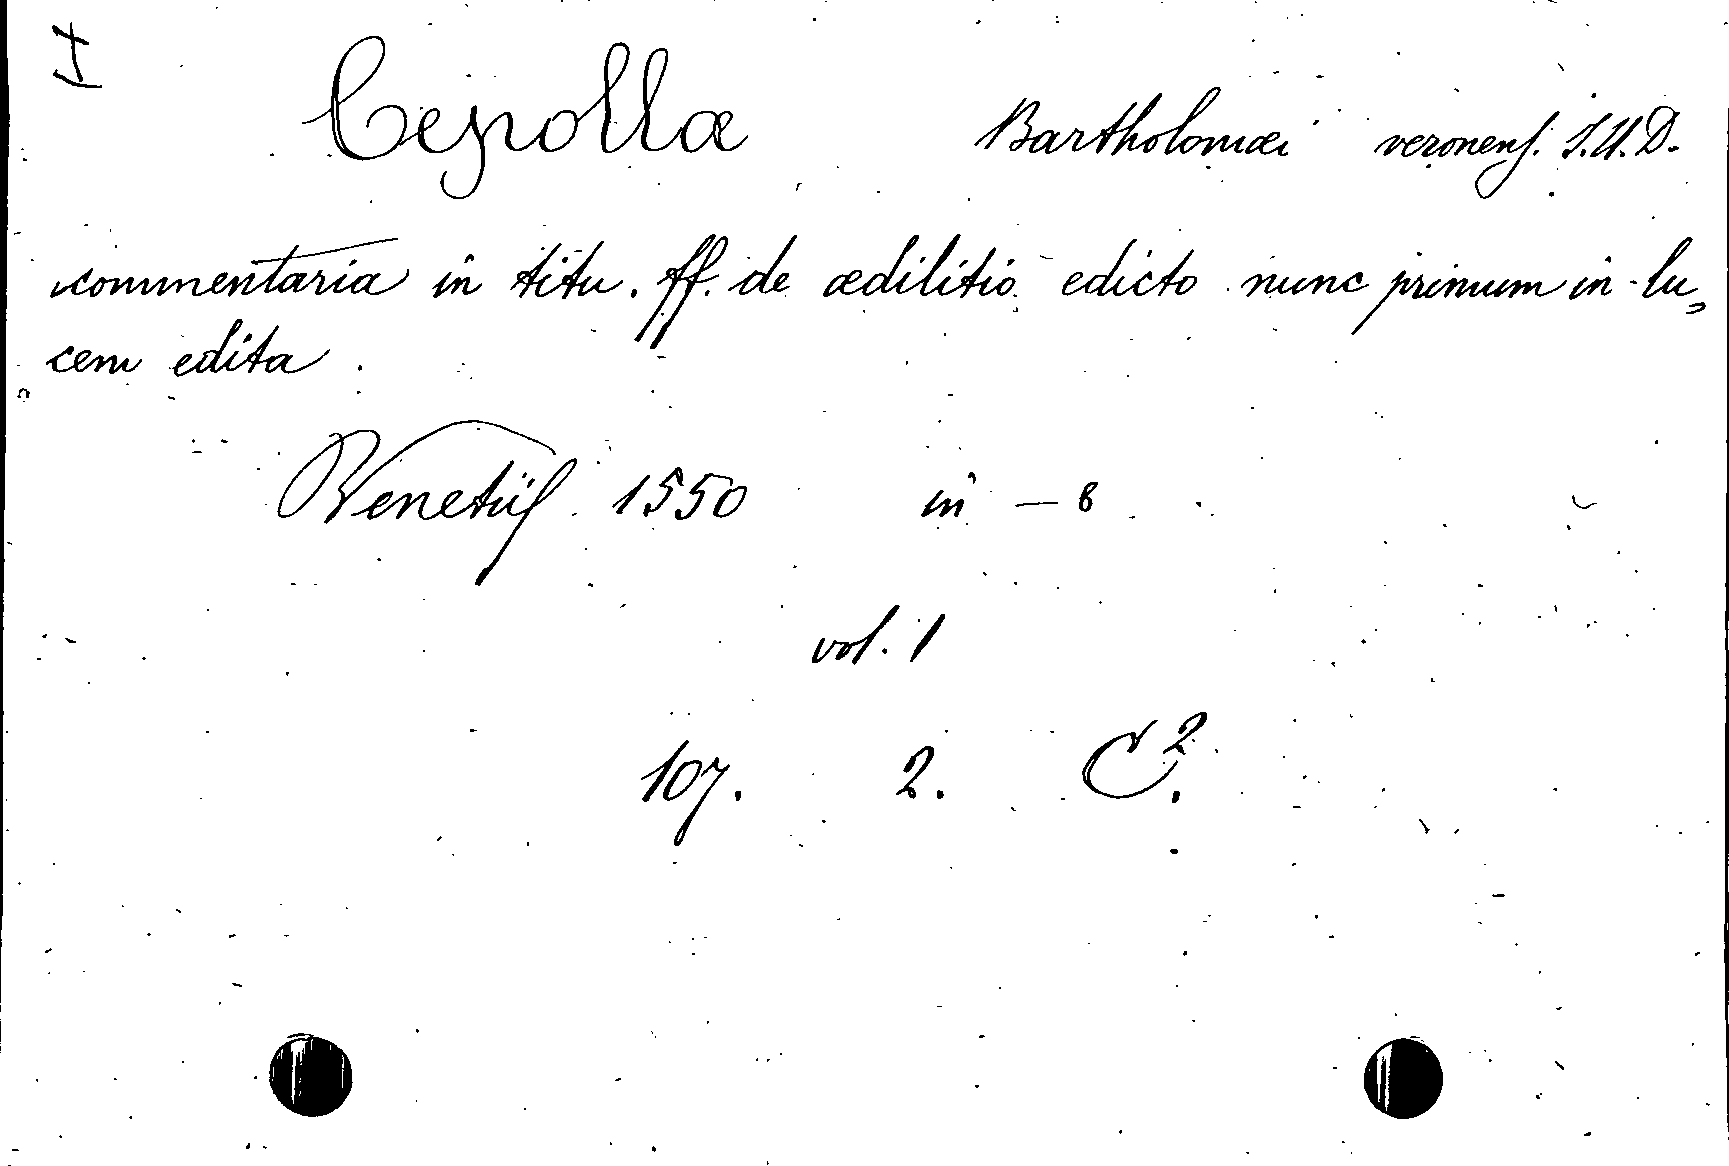 Cepollæ Bartholomæi veronens. I.U.D.
commentaria in titu. ff. de ædilitio edicto nunc primum in lu,
cem edita.
Venetiis 1550 in - 8
vol. 1
107. 2. C².